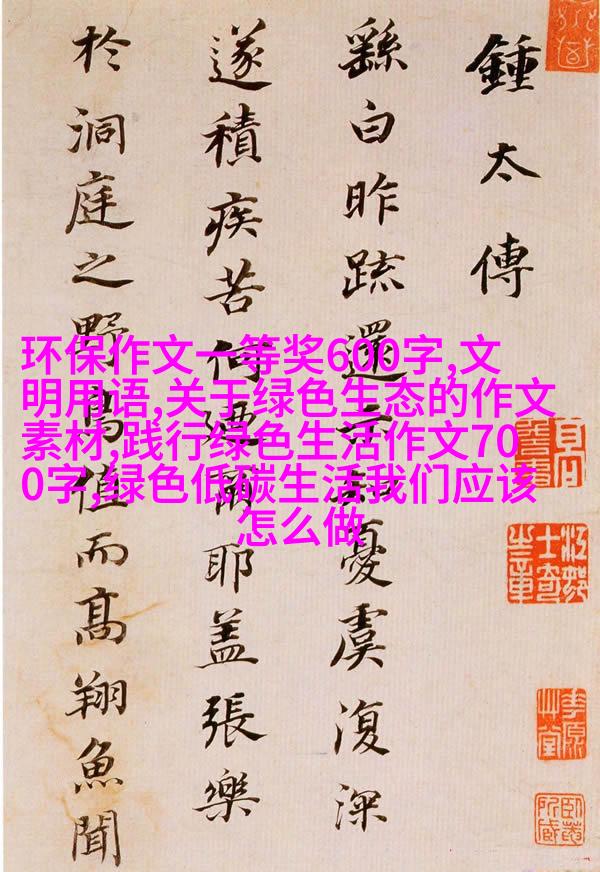 鍾太傅
繇白昨疏還示知憂虞復深
遂積疾苦何迺爾耶蓋張樂
於洞庭之野鳥值而高翔魚聞
环保作文一等奖600字,文
明用语,关于绿色生态的作文
素材,践行绿色生活作文70
0字,绿色低碳生活我们应该
怎么做